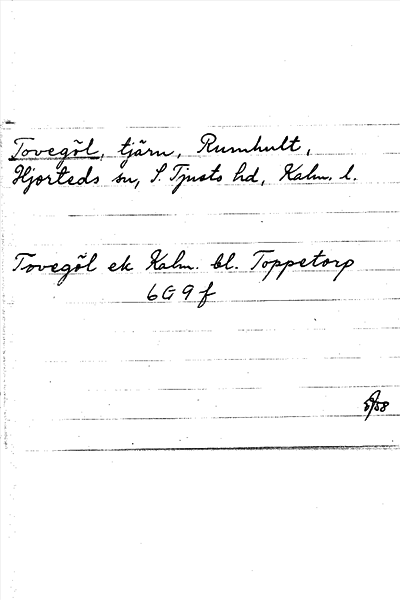 Tovegöl, tjärn, Rumhult,
Hjorteds sn, S. Tjusts hd, Kalm. l.
Tovegöl ek Kalm. bl. Toppetorp
6G9f